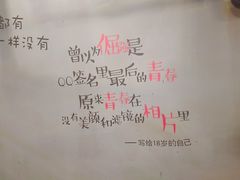 都有
一样没有
曾以为倔强是
QQ签名里最后的青春
原来青春在
没有美颜和滤镜的相片里
——写给18岁的自己